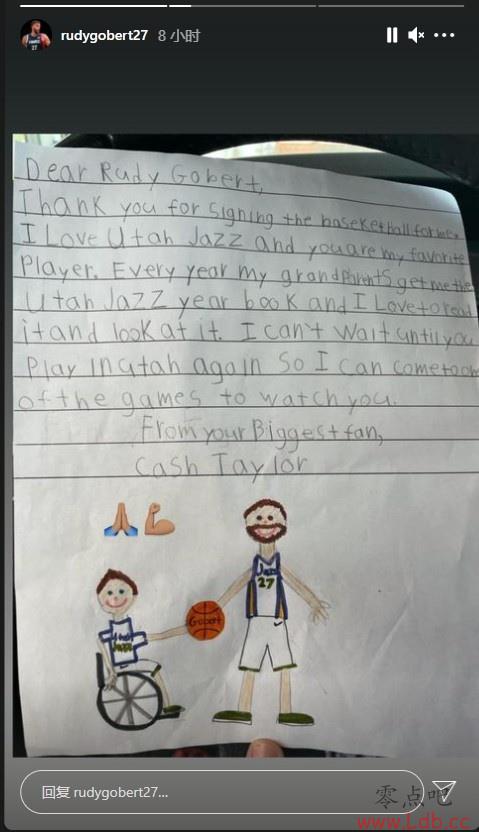 rudygobert27 8 小时
Dear Rudy Gobert,
Thank you for signing the baseketball for me.
I Love Utah Jazz and you are my favorite
Player. Every year my grandparents get me the
Utah Jazz year book and I Love to read
it and look at it. I can't wait until you
Play in Utah again so I can come to one
of the games to watch you.
From your Biggest fan,
Cash Taylor
Jazz
27
Gobert
Utah
Jazz
回复 rudygobert27...
零点吧
www.Ldb.cc